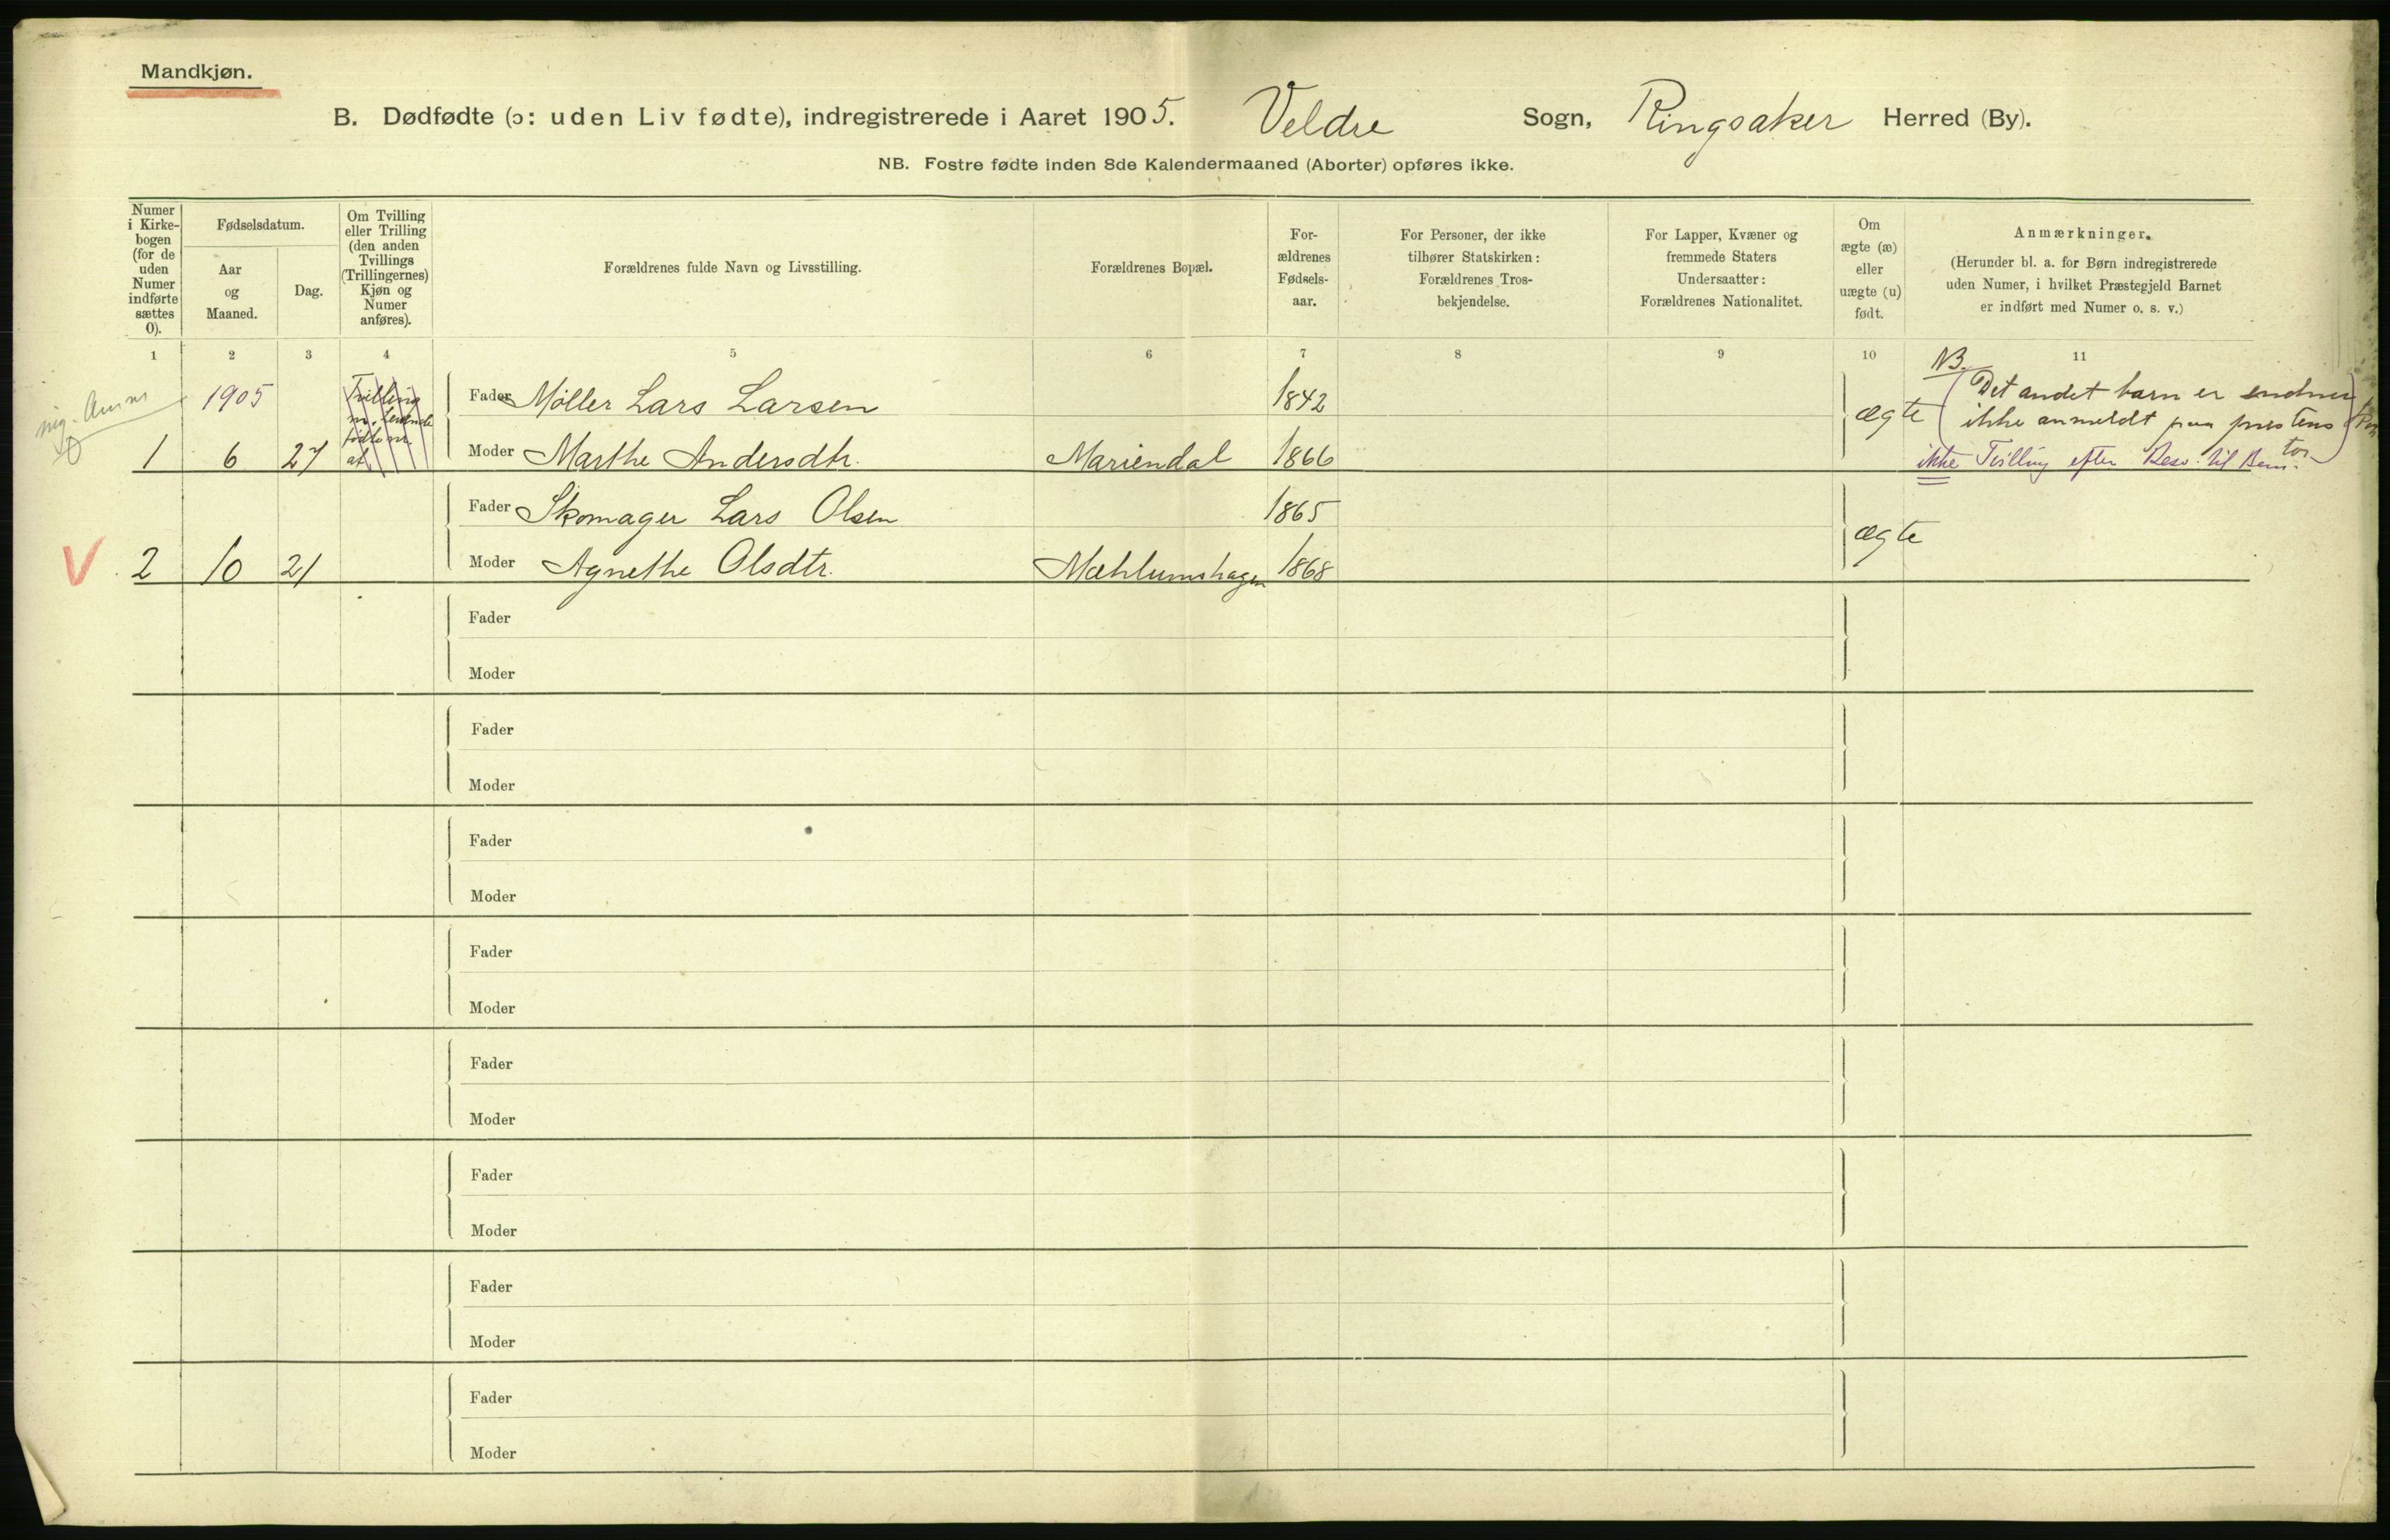 Mandkjøn.
B. Dødfødte (ɔ: uden Liv fødte), indregistrerede i Aaret 1905. Veldre Sogn, Ringsaker Herred (By).
NB. Fostre fødte inden 8de Kalendermaaned (Aborter) opføres ikke.
Numer
i Kirke-
bogen
(for de
uden
Numer
indførte
sættes
0).
Fødselsdatum.
Aar
og
Maaned.
Dag.
Om Tvilling
eller Trilling
(den anden
Tvillings
(Trillingernes)
Kjøn og
Numer
anføres).
Forældrenes fulde Navn og Livsstilling.
Forældrenes Bopæl.
For-
ældrenes
Fødsels-
aar.
For Personer, der ikke
tilhører Statskirken:
Forældrenes Tros-
bekjendelse.
For Lapper, Kvæner og
fremmede Staters
Undersaatter:
Forældrenes Nationalitet.
Om
ægte (æ)
eller
uægte (u)
født.
Anmærkninger.
(Herunder bl. a. for Børn indregistrerede
uden Numer, i hvilket Præstegjeld Barnet
er indført med Numer o. s. v.)
1 2 3 4 5 6 7 8 9 10 11
1905 Tvilling Fader Møller Lars Larsen 1842 ægte
1 6 27 Moder Marthe Andersdtr. Mariendal 1866
NB.
(Det andet barn er endnu
ikke anmeldt paa prestens
ikke Tvilling efter Resv. til
V 2 10 21 Fader Skomager Lars Olsen 1865 ægte
Moder Agnethe Olsdtr. Mæhlumshagen 1868
Fader
Moder
Fader
Moder
Fader
Moder
Fader
Moder
Fader
Moder
Fader
Moder
Fader
Moder
Fader
Moder